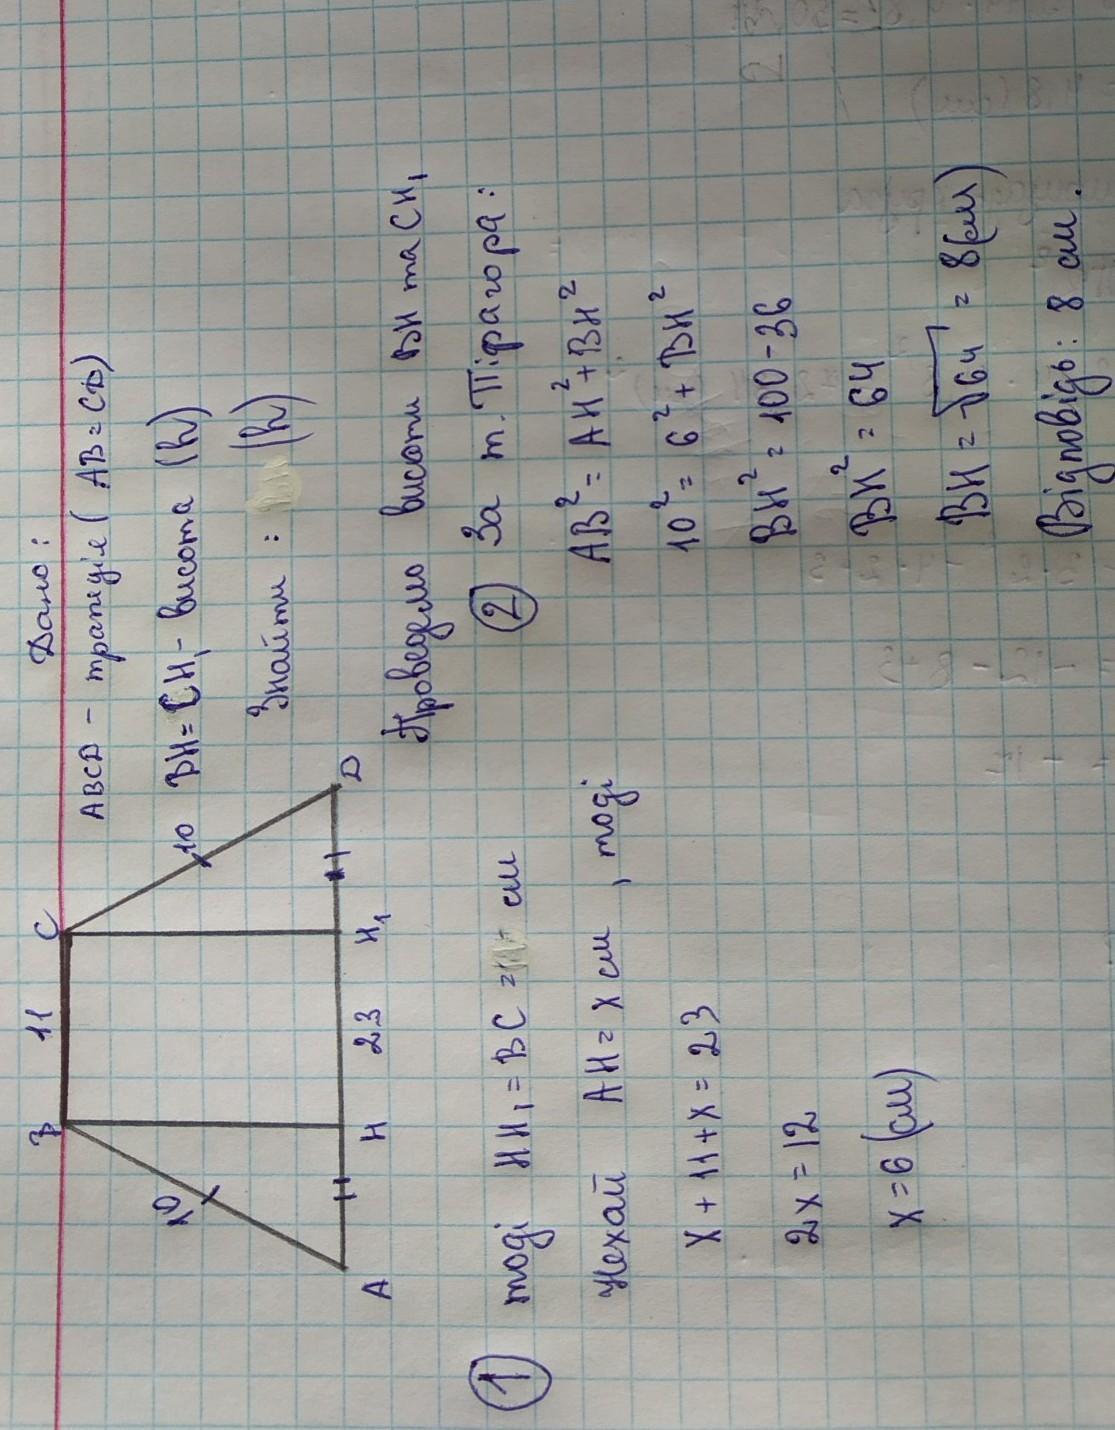 Дано:
ABCD - трапеція ( AB = CD)
BH = CH₁ - висота (h)
Знайти : (h)
B 11 C
10 10
A H 23 H₁ D
Проведемо висоти BH та CH₁
① тоді HH₁ = BC = см
Нехай AH = x см , тоді
x + 11 + x = 23
2x = 12
x = 6 (см)
② За т. Піфагора :
AB² = AH² + BH²
10² = 6² + BH²
BH² = 100 - 36
BH² = 64
BH = √64 = 8 (см)
Відповідь : 8 см .